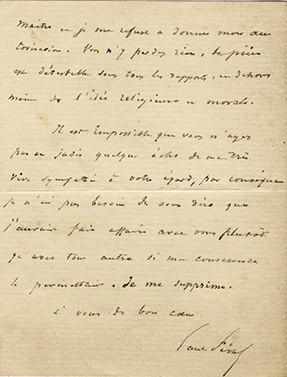 Maître et je me refuse à donner mon au-
torisation. Vous n'y perdez rien, la pièce
est détestable sous tous les rapports, en dehors
même de l'idée religieuse et morale.
Il est impossible que vous n'ayez
pas eu jadis quelque écho de ma très
vive sympathie à votre égard, par conséquent
je n'ai pas besoin de vous dire que
j'aurais fait affaire avec vous plutôt
qu'avec tout autre si ma conscience
le permettait. Je me supprime.
à vous de bon cœur
Paul Féval